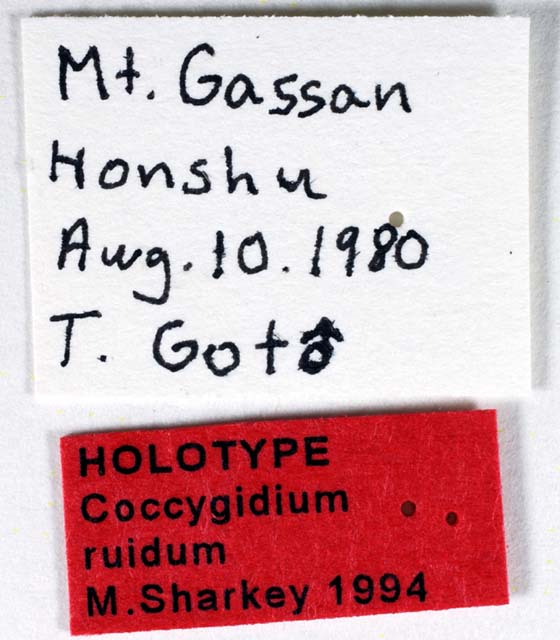 Mt. Gassan
Honshu
Aug. 10. 1980
T. Goto
HOLOTYPE
Coccygidium
ruidum
M.Sharkey 1994